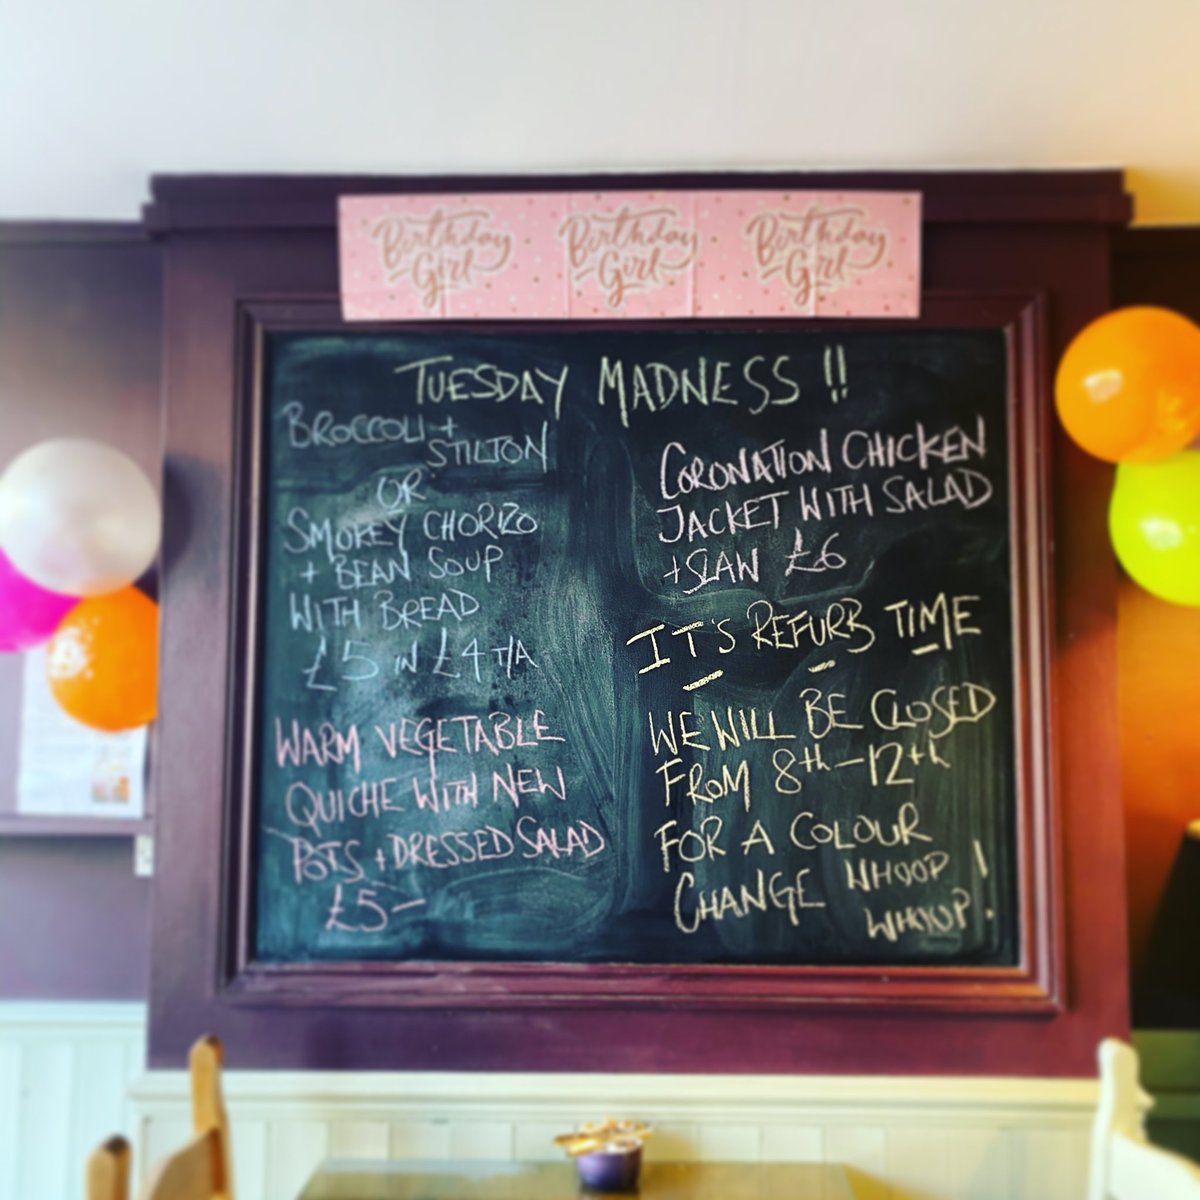 Birthday Girl
Birthday Girl
Birthday Girl
TUESDAY MADNESS !!
BROCCOLI +
STILTON
OR
SMOKEY CHORIZO
+ BEAN SOUP
WITH BREAD
£5 IN £4 T/A
WARM VEGETABLE
QUICHE WITH NEW
POTS + DRESSED SALAD
£5-
CORONATION CHICKEN
JACKET WITH SALAD
+ SLAW £6
IT'S REFURB TIME
WE WILL BE CLOSED
FROM 8th-12th
FOR A COLOUR
CHANGE WHOOP
WHOOP!